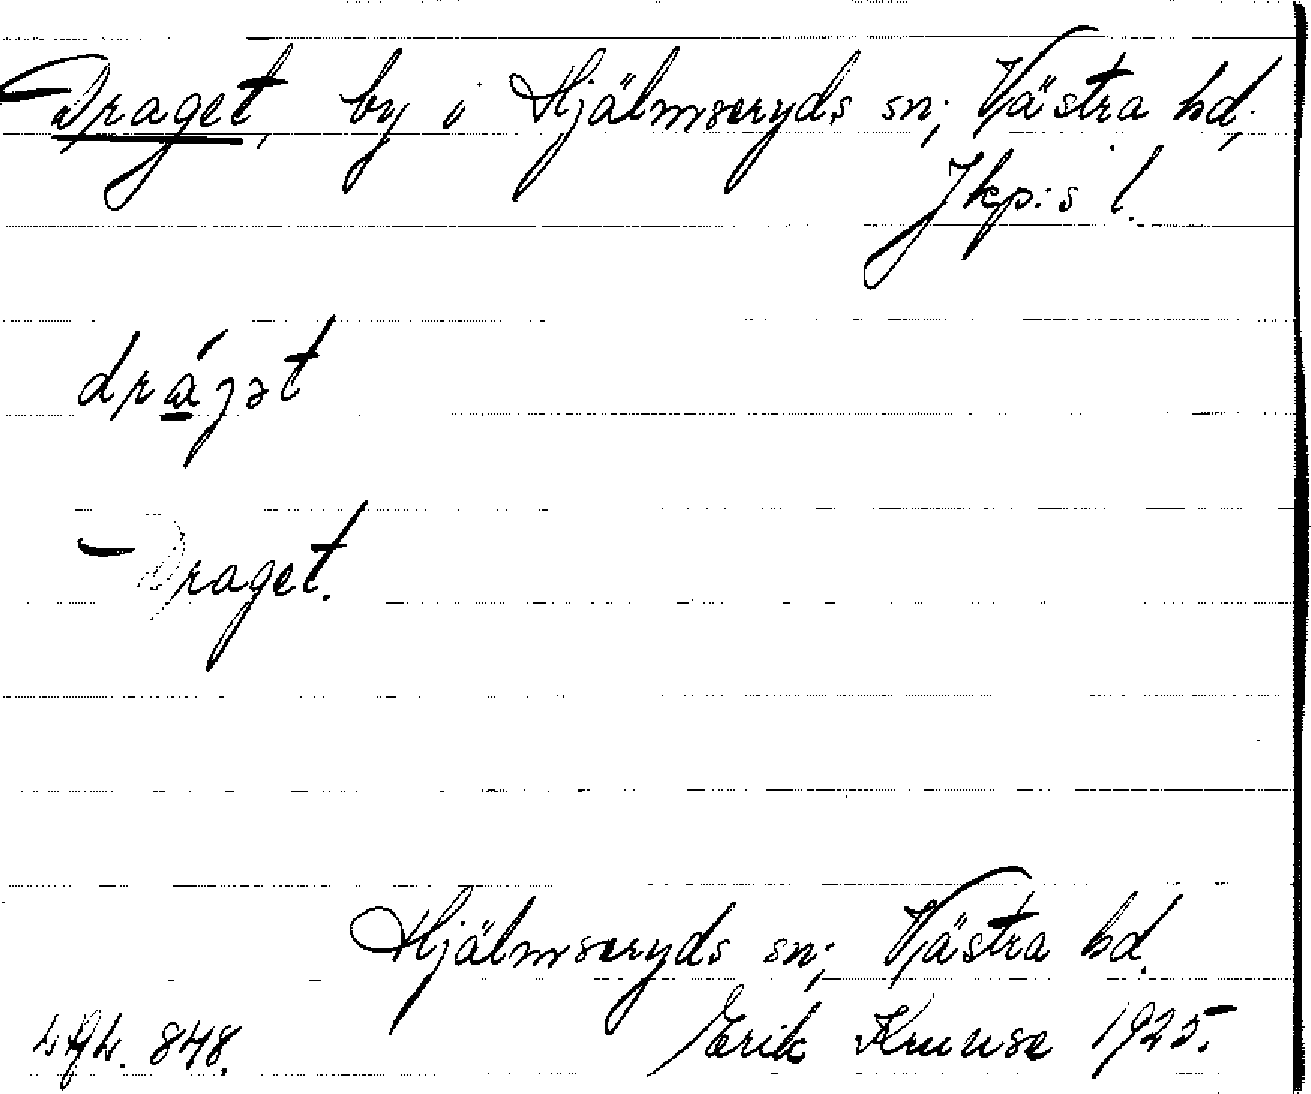 Draget, by i Hjälmseryds sn; Västra hd;
Jkp:s l.
drág̲ət
Draget.
Hjälmseryds sn; Västra hd.
848. Erik Kruuse 1925.